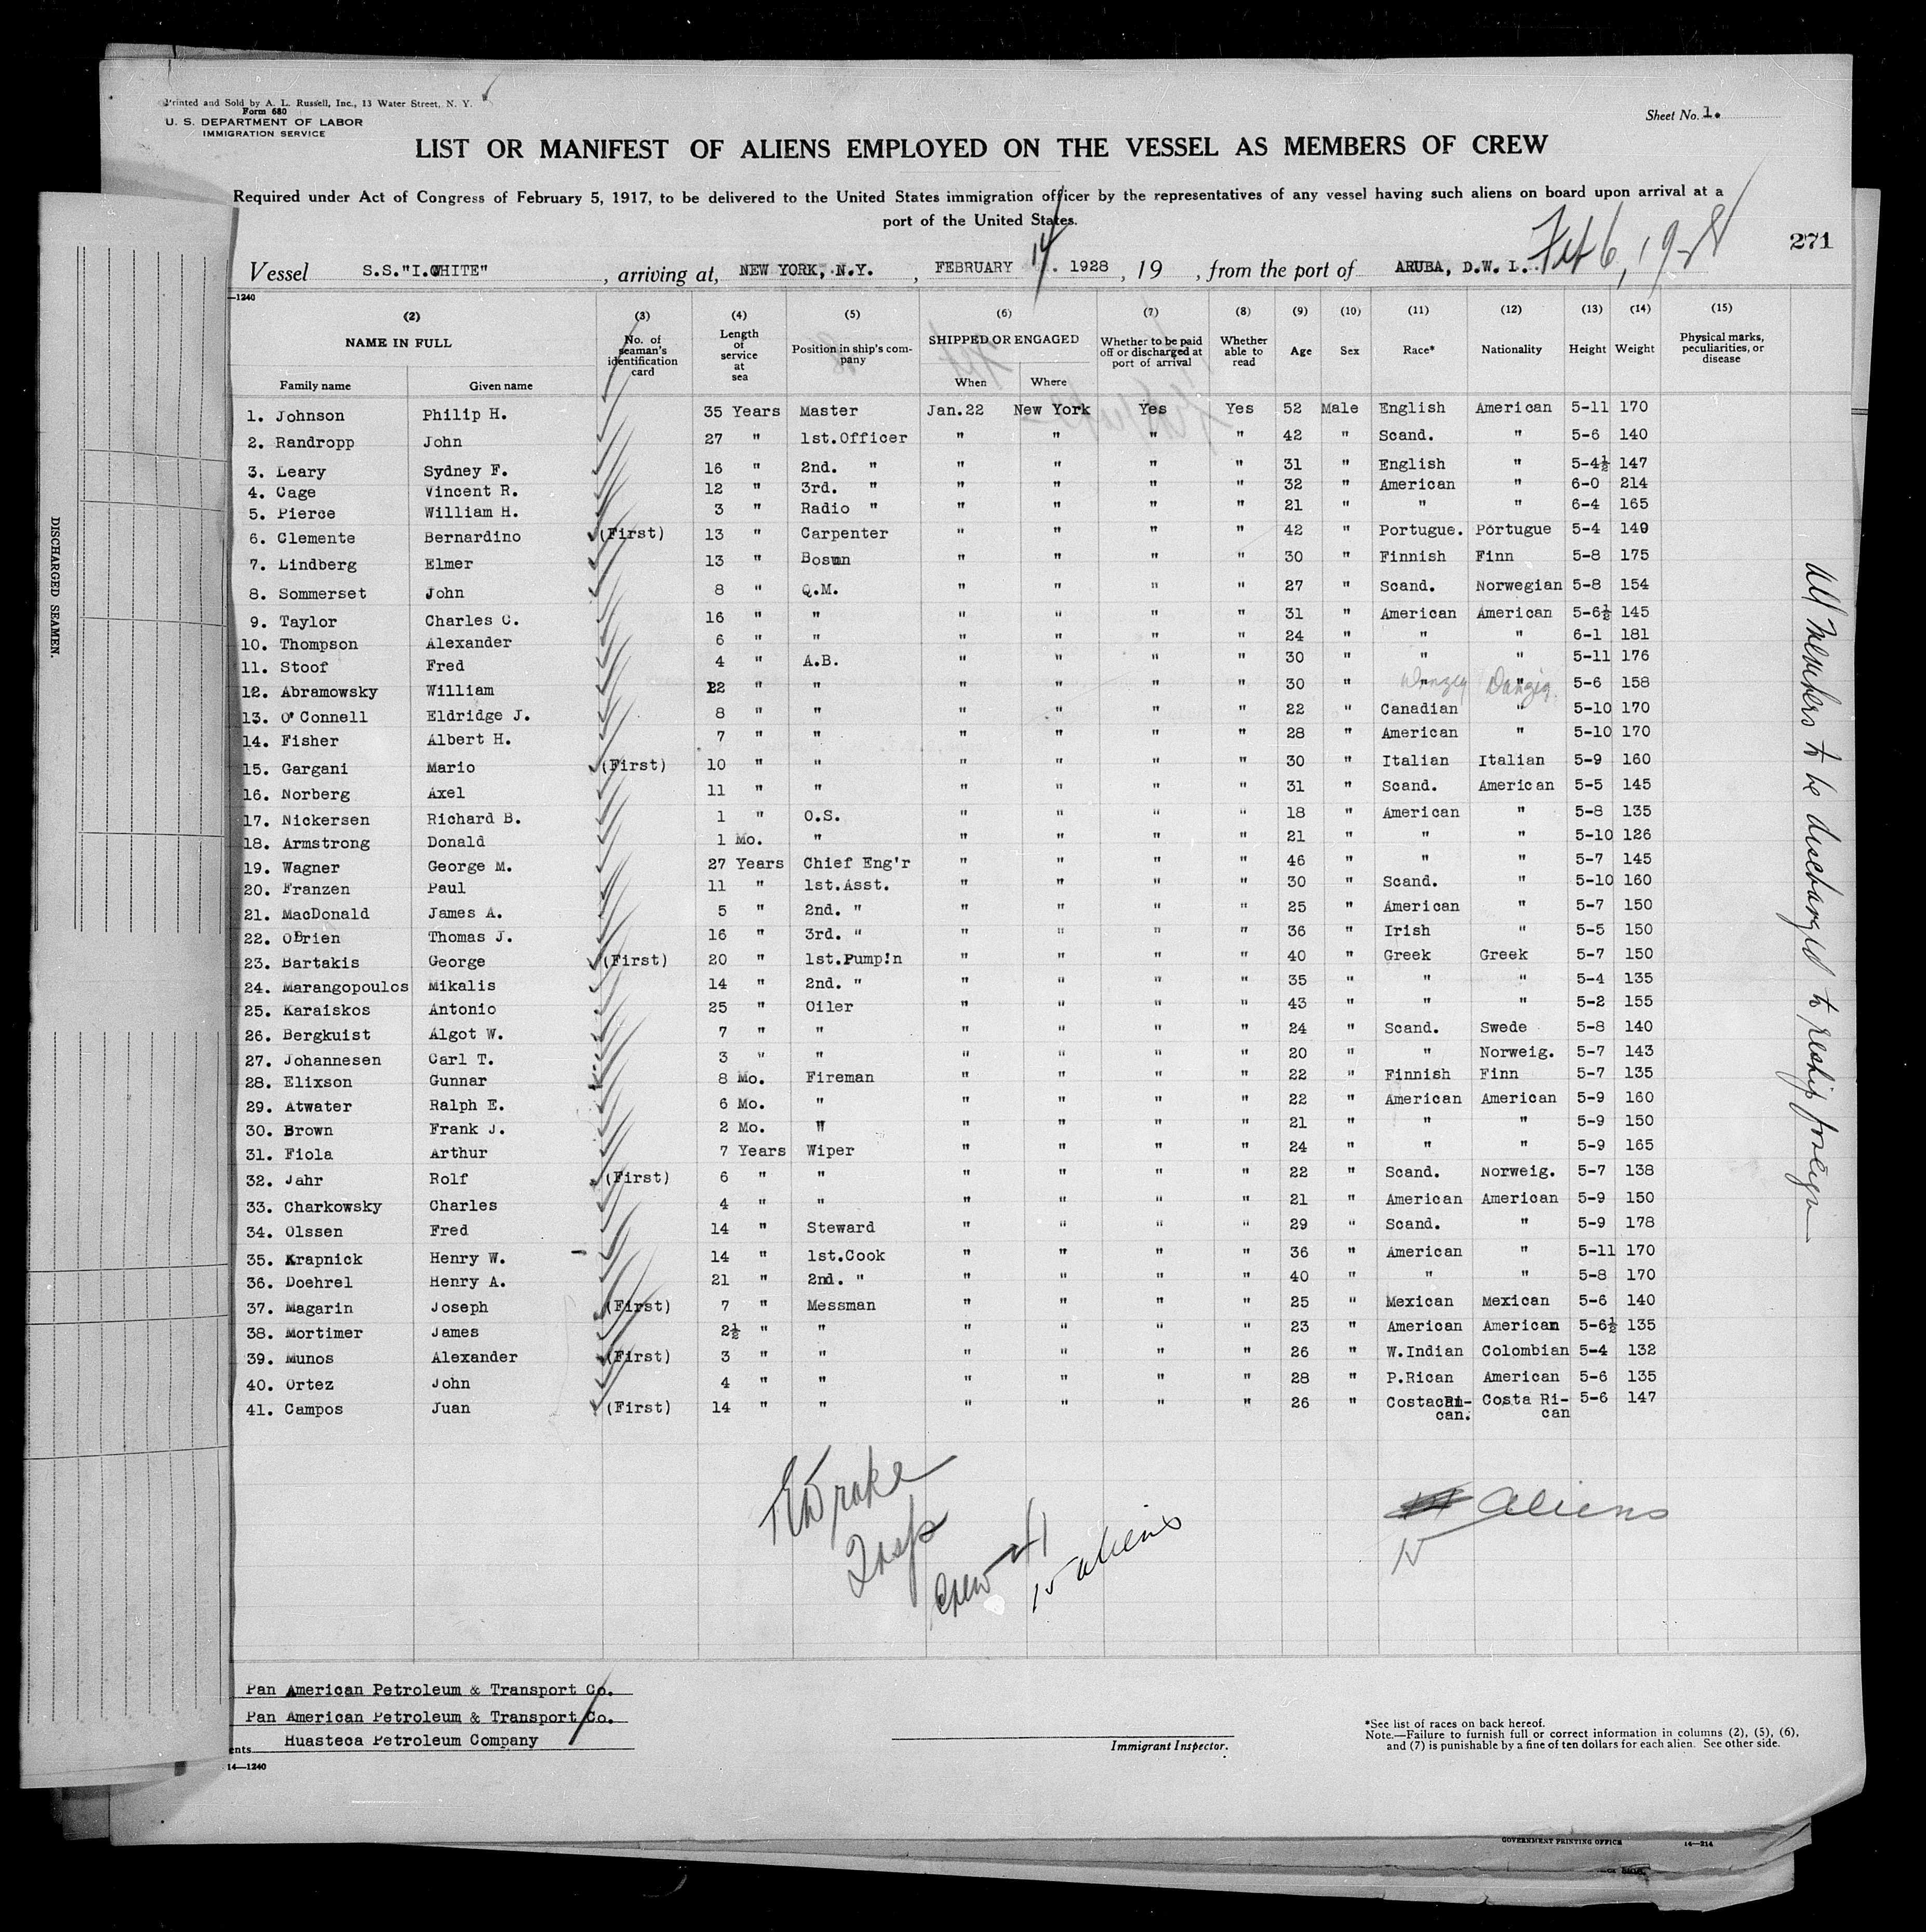 Printed and Sold by A. L. Russell, Inc., 13 Water Street, N. Y.
Form 680
U. S. DEPARTMENT OF LABOR
IMMIGRATION SERVICE
Sheet No. 1.
LIST OR MANIFEST OF ALIENS EMPLOYED ON THE VESSEL AS MEMBERS OF CREW
Required under Act of Congress of February 5, 1917, to be delivered to the United States immigration officer by the representatives of any vessel having such aliens on board upon arrival at a
port of the United States.
271
Vessel S.S."I.WHITE" , arriving at, NEW YORK, N.Y. , FEBRUARY 14. 1928 , 19 , from the port of ARUBA, D.W.I. Feb 6, 1928
—1240
(2) (3) (4) (5) (6) (7) (8) (9) (10) (11) (12) (13) (14) (15)
NAME IN FULL No. of seaman's identification card Length of service at sea Position in ship's company SHIPPED OR ENGAGED Whether to be paid off or discharged at port of arrival Whether able to read Age Sex Race* Nationality Height Weight Physical marks, peculiarities, or disease
Family name Given name When Where
1. Johnson Philip H. 35 Years Master Jan.22 New York Yes Yes 52 Male English American 5-11 170
2. Randropp John 27 " 1st.Officer " " " " 42 " Scand. " 5-6 140
3. Leary Sydney F. 16 " 2nd. " " " " " 31 " English " 5-4½ 147
4. Cage Vincent R. 12 " 3rd. " " " " " 32 " American " 6-0 214
5. Pierce William H. 3 " Radio " " " " " 21 " " " 6-4 165
6. Clemente Bernardino (First) 13 " Carpenter " " " " 42 " Portugue. Portugue 5-4 149
7. Lindberg Elmer 13 " Bosun " " " " 30 " Finnish Finn 5-8 175
8. Sommerset John 8 " Q.M. " " " " 27 " Scand. Norwegian 5-8 154
9. Taylor Charles C. 16 " " " " " " 31 " American American 5-6½ 145
10. Thompson Alexander 6 " " " " " " 24 " " " 6-1 181
11. Stoof Fred 4 " A.B. " " " " 30 " " " 5-11 176
12. Abramowsky William 22 " " " " " " 30 " " Danzig " Danzig 5-6 158
13. O'Connell Eldridge J. 8 " " " " " " 22 " Canadian " 5-10 170
14. Fisher Albert H. 7 " " " " " " 28 " American " 5-10 170
15. Gargani Mario (First) 10 " " " " " " 30 " Italian Italian 5-9 160
16. Norberg Axel 11 " " " " " " 31 " Scand. American 5-5 145
17. Nickersen Richard B. 1 " O.S. " " " " 18 " American " 5-8 135
18. Armstrong Donald 1 Mo. " " " " " 21 " " " 5-10 126
19. Wagner George M. 27 Years Chief Eng'r " " " " 46 " " " 5-7 145
20. Franzen Paul 11 " 1st.Asst. " " " " 30 " Scand. " 5-10 160
21. MacDonald James A. 5 " 2nd. " " " " " 25 " American " 5-7 150
22. OBrien Thomas J. 16 " 3rd. " " " " " 36 " Irish " 5-5 150
23. Bartakis George (First) 20 " 1st.Pump!n " " " " 40 " Greek Greek 5-7 150
24. Marangopoulos Mikalis 14 " 2nd. " " " " " 35 " " " 5-4 135
25. Karaiskos Antonio 25 " Oiler " " " " 43 " " " 5-2 155
26. Bergkuist Algot W. 7 " " " " " " 24 " Scand. Swede 5-8 140
27. Johannesen Carl T. 3 " " " " " " 20 " " Norweig. 5-7 143
28. Elixson Gunnar 8 Mo. Fireman " " " " 22 " Finnish Finn 5-7 135
29. Atwater Ralph E. 6 Mo. " " " " " 22 " American American 5-9 160
30. Brown Frank J. 2 Mo. " " " " " 21 " " " 5-9 150
31. Fiola Arthur 7 Years Wiper " " " " 24 " " " 5-9 165
32. Jahr Rolf (First) 6 " " " " " " 22 " Scand. Norweig. 5-7 138
33. Charkowsky Charles 4 " " " " " " 21 " American American 5-9 150
34. Olssen Fred 14 " Steward " " " " 29 " Scand. " 5-9 178
35. Krapnick Henry W. 14 " 1st.Cook " " " " 36 " American " 5-11 170
36. Doehrel Henry A. 21 " 2nd. " " " " " 40 " " " 5-8 170
37. Magarin Joseph (First) 7 " Messman " " " " 25 " Mexican Mexican 5-6 140
38. Mortimer James 2½ " " " " " " 23 " American American 5-6½ 135
39. Munos Alexander (First) 3 " " " " " " 26 " W.Indian Colombian 5-4 132
40. Ortez John 4 " " " " " " 28 " P.Rican American 5-6 135
41. Campos Juan (First) 14 " " " " " " 26 " Costa Ri- Costa Ri- 5-6 147
can. can
All Members to be discharged to reship foreign
DISCHARGED SEAMEN.
Drake
Insp
Crew 41
15 aliens
aliens
15
Pan American Petroleum & Transport Co.
Pan American Petroleum & Transport Co.
Huasteca Petroleum Company
ents
14—1240
Immigrant Inspector.
*See list of races on back hereof.
Note.—Failure to furnish full or correct information in columns (2), (5), (6),
and (7) is punishable by a fine of ten dollars for each alien. See other side.
GOVERNMENT PRINTING OFFICE 14—214